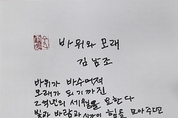 바위와 모래
김남조
바위가 바수어져
모래가 되기까진
2억년의 세월을 요한다
빛과 바람과 시간이 힘을 모아주면